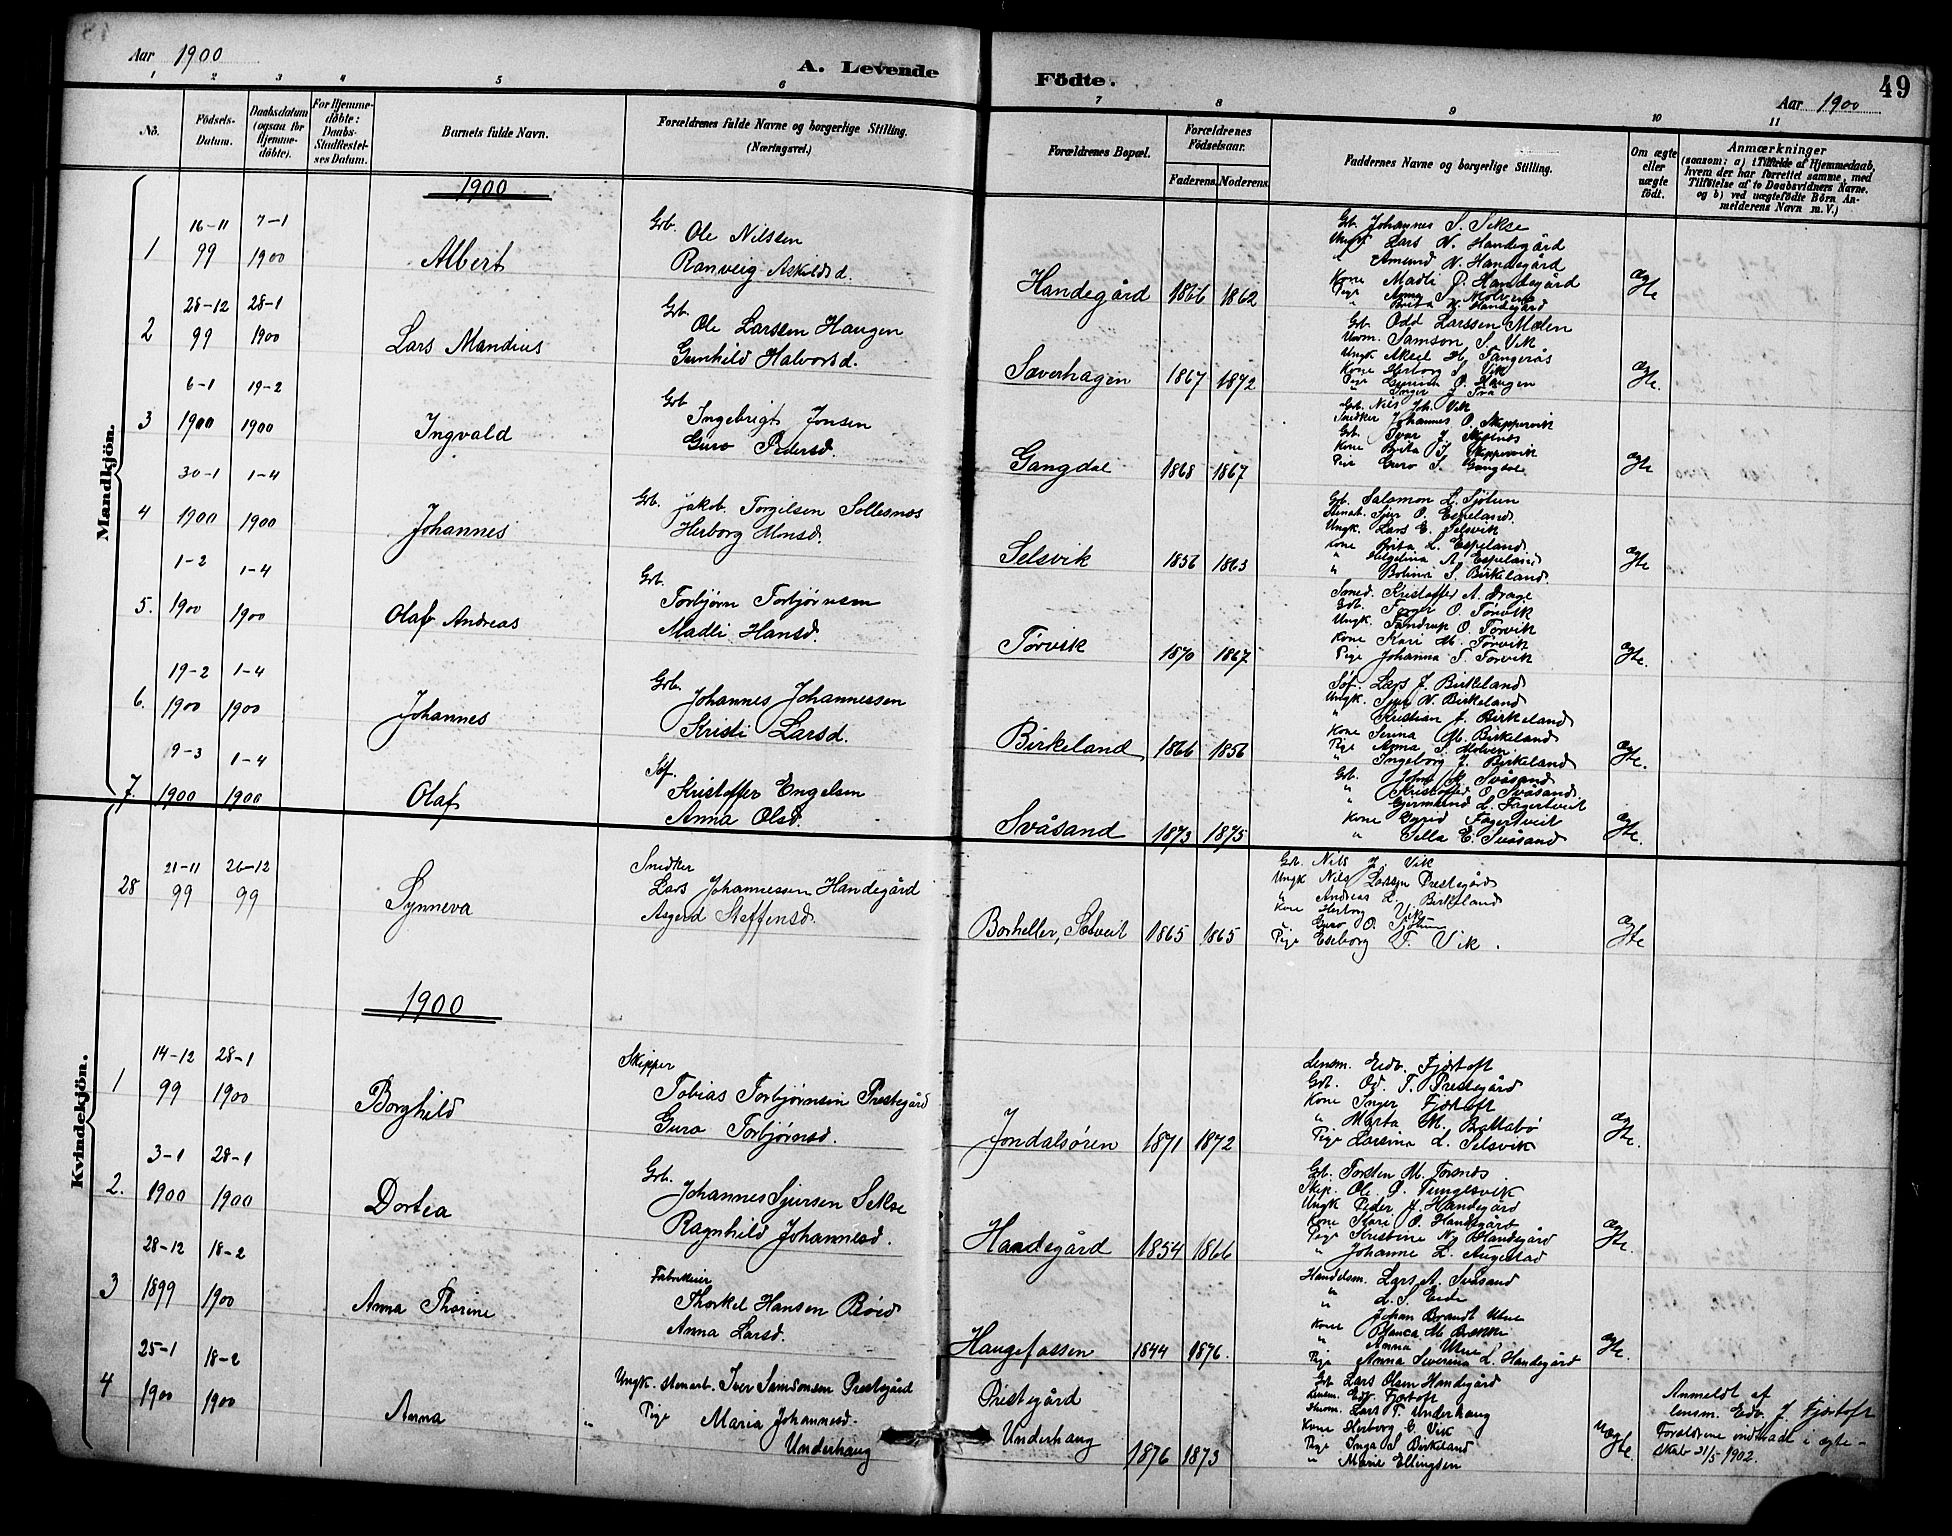 Aar 1900
A. Levende Födte.
49
Aar 1900
1 2 3 4 5 6 7 8 9 10 11
No.
Födsels-Datum.
Daabsdatum (ogsaa for Hjemmedöbte).
For Hjemmedöbte: Daabs-Stadfæstelses Datum.
Barnets fulde Navn.
Forældrenes fulde Navne og borgerlige Stilling. (Næringsvei.)
Forældrenes Bopæl.
Forældrenes Födselsaar.
Faderens. Moderens.
Faddernes Navne og borgerlige Stilling.
Om ægte eller uægte födt.
Anmærkninger
(saasom: a) i Tilfælde af Hjemmedaab, hvem der har forrettet samme, med Tilföielse af to Daabsvidners Navne, og b) ved uægtefödte Börn Anmelderens Navn m. V.)
Mandkjön.
1900
1 16-11 99 7-1 1900 Albert
Grb. Ole Nilssen
Ranveig Askildsd.
Handegård 1866 1862
Grb. Johannes S. Sekse
Ungk Lars N. Handegård
" Amund N. Handegård
Kone Madli P. Handegård
Pige Anna S. Molven
" Brita N. Handegård
ægte
2 28-12 99 28-1 1900 Lars Mandius
Grb. Ole Larssen Haugen
Gunhild Halvorsd.
Sæverhagen 1867 1872
Grb. Odd Larssen Mælen
Samson S. Vik
Ungk Aksel H. Tangerås
Kone Herborg S. Vik
Pige O. Haugen
ægte
3 6-1 1900 19-2 1900 Ingvald
Grb Ingebrigt Jonsen
Guro Pedersd.
Gangdal 1868 1867
Grb. Nils Joh. Vik
Snedker Johannes O. Skippervik
Grb. Ivar J.
Kone Brita J. Skippervik
Pige Guro S. Gangdal
ægte
4 30-1 1900 1-4 1900 Johannes
Grb. Jakob Torgilsen Sollesnes
Herborg Monsd.
Selsvik 1856 1863
Grb. Salomon L. Sjötun
Stenarb. Sjur O. Espeland
Ungk. Lars E. Selsvik
Kone Brita L. Espeland
" Helgelina A. Espeland
" Bolina S. Birkeland
ægte
5. 1-2 1900 1-4 1900 Olaf Andreas
Grb. Torbjörn Torbjörnsen
Madli Hansd.
Törvik 1870 1867
Smed. Kristoffer A. Drage
Grb. Torger O. Törvik
Ungk. Tandrup O. Törvik
Kone Kari M. Törvik
Pige Johanna T. Törvik
ægte.
6. 19-2 1900 1-4 1900 Johannes
Grb. Johannes Johannessen
Kristi Larsd.
Birkeland 1866 1856
Söf. Lars J. Birkeland
Ungk. Sjur N. Birkeland
" Kristian J. Birkeland
Kone Serina M. Birkeland
Pige Anna S. Molven
" Ingeborg J. Birkeland
ægte.
7. 9-3 1900 1-4 1900 Olaf
Söf. Kristoffer Engelsen
Anna Olsd.
Svåsand 1873 1875
Grb. John K. Svåsand
" Kristoffer O. Svåsand
" Gjermund L. Fagertveit
Kone Gyrid Fagertveit
" Sella E. Svåsand
ægte.
Kvindekjön.
28 21-11 99 26-12 99 Synneva
Snedker
Lars Johannessen Handegård
Asgerd Steffensd.
Borheller, Solveit 1865 1865
Grb. Nils J. Vik
Ungk Nils Larssen Prestegård
" Andreas L. Birkeland
Kone Herborg Vik
" Guro O. Sjötun
Pige Eseborg T. Vik.
ægte
1900
1 14-12 99 28-1 1900 Borghild
Skipper
Tobias Torbjørnsen Prestegård
Guro Torbjørnsd.
Jondalsören 1871 1872
Lensm. Edv. Fjørtoft
Grb. Od. T. Prestegård
Kone Inger Fjørtoft
" Marta M. Ballabö
Pige Larsina L. Selsvik
ægte.
2. 3-1 1900 28-1 1900 Dortea
Grb. Johannes Sjursen Sekse
Ragnhild Johannesd.
Handegård 1854 1866
Grb. Torsten M. Torsnes
Skip. Ole O. Tunglsvik
Ungk Peder J. Handegård
Kone Kari O. Handegård
Pige Kristine N. Handegård
" Johanne L. Augestad
ægte.
3 28-12 1899 18-2 1900 Anna Thorine
Fabrikeier
Thorkel Hansen Röed
Anna Larsd.
Haugefossen 1844 1876.
Handelsm. Lars A. Svåsand
" L. S. Eide
" Johan Brandt Utne
Kone M. Brekke
" Anna Utne
Pige Anna Severina L. Handegård
ægte.
4 25-1 1900 18-2 1900 Anna
Ungk. stenarb. Iver Samsonsen Prestegård
" Pige Maria Johannesd. Underhaug
Prestegård
Underhaug 1876 1873
Grb Lars Olsen Handegård
Lensm. Edv. Fjørtoft
Lars T. Underhaug
Kone Herborg G. Vik
Pige Inga S. Birkeland
" Marie Ellingsen
uægte.
Anmeldt af lensm. Edv. J. Fjørtoft
Forældrene indtraadt i ægteskab 31/5 1902.